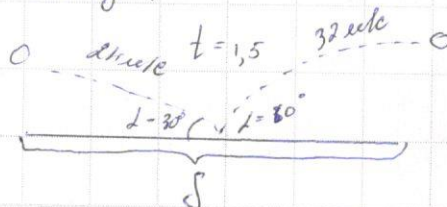 24 м/с t = 1,5 32 м/с
α - 30° α = 80°
S